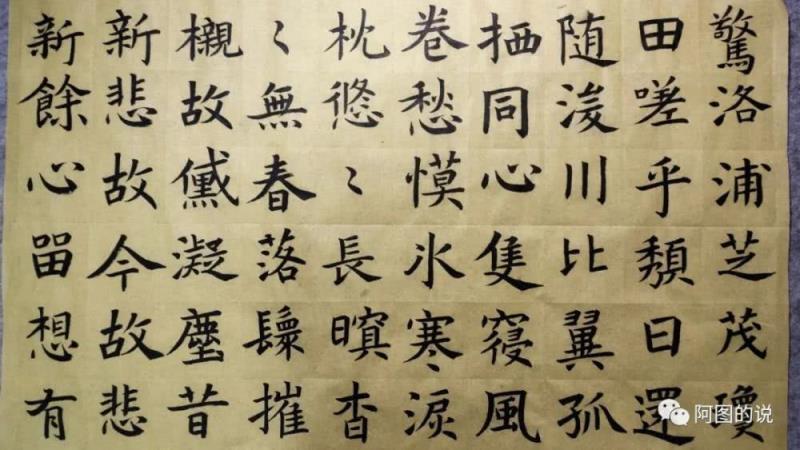 驚洛浦芝茂瓊
田嗟乎頹日還
随浚川比翼孤
栖同心隻寝風
卷愁幙氷寒淚
枕悠〻長暝杳
〻無春落鬟摧
櫬故黛凝塵昔
新悲故今故悲
新餘心留想有
阿图的说